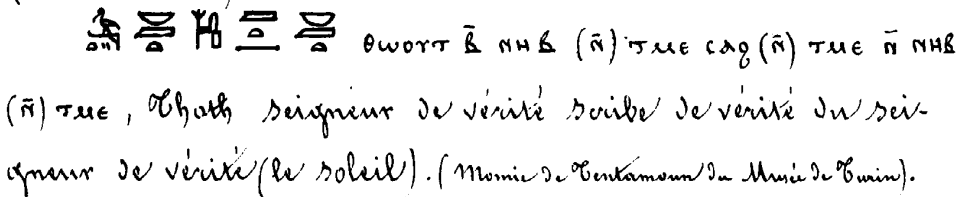 ⲑⲱⲟⲩⲧ ⲃ̄ ⲛⲏⲃ (ⲛ̄) ⲧⲙⲉ ⲥⲁϧ (ⲛ̄) ⲧⲙⲉ ⲛ̄ ⲛⲏⲃ
(ⲛ̄) ⲧⲙⲉ, Thoth seigneur de vérité scribe de vérité du sei-
gneur de vérité (le soleil). (Momie de Tentamoun du Musée de Turin).